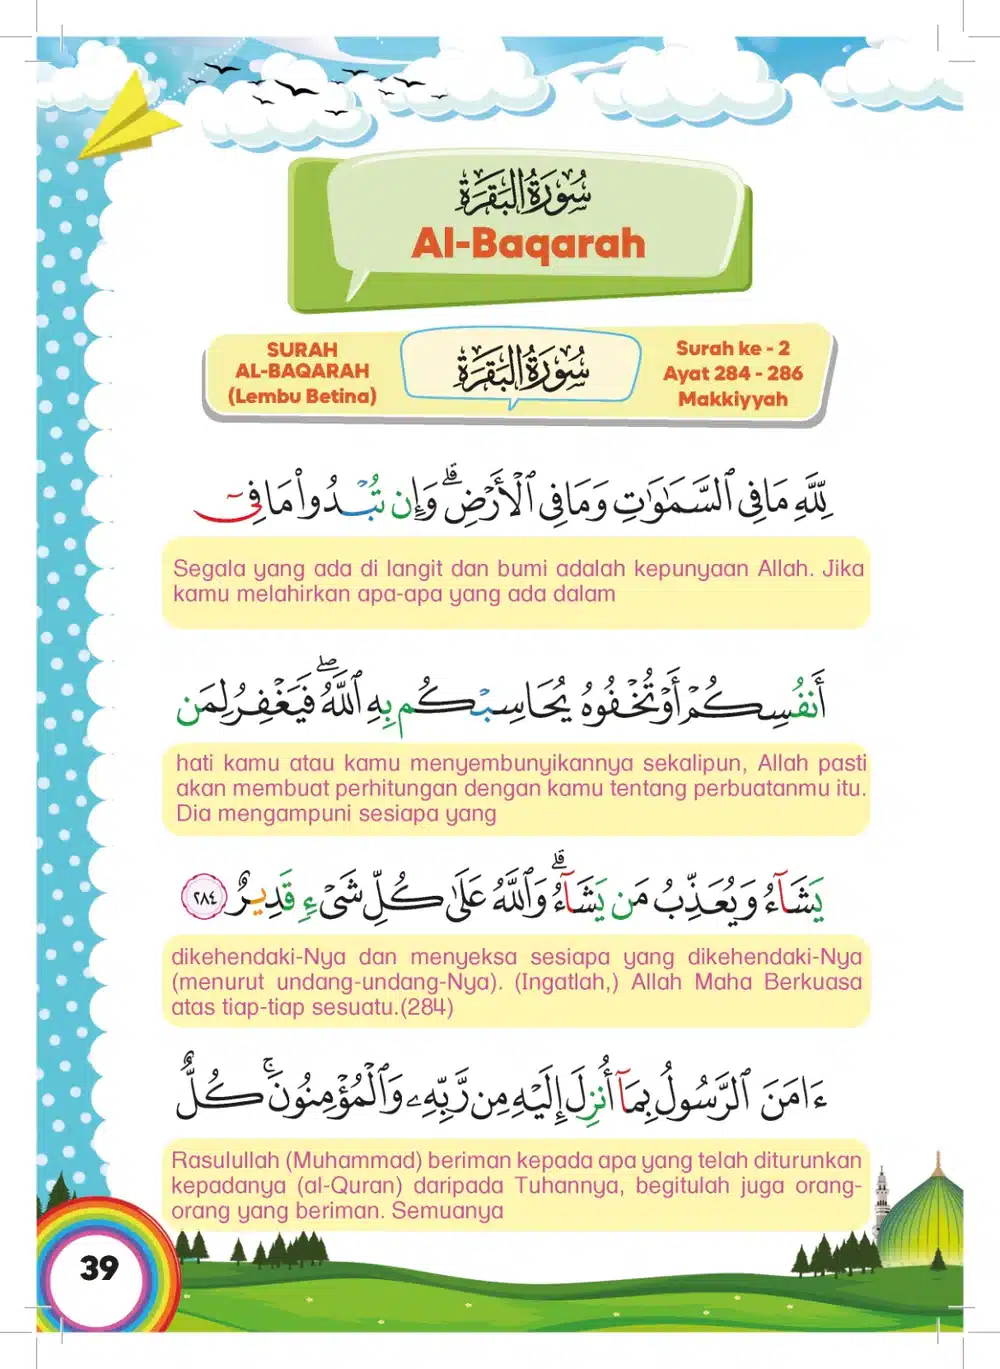 سُورَةُ الْبَقَرَةِ
Al-Baqarah
SURAH
AL-BAQARAH
(Lembu Betina)
سُورَةُ الْبَقَرَةِ
Surah ke - 2
Ayat 284 - 286
Makkiyyah
لِلَّهِ مَا فِى ٱلسَّمَـٰوَٰتِ وَمَا فِى ٱلْأَرْضِ ۗ وَإِن تُبْدُوا۟ مَا فِىٓ
Segala yang ada di langit dan bumi adalah kepunyaan Allah. Jika
kamu melahirkan apa-apa yang ada dalam
أَنفُسِكُمْ أَوْ تُخْفُوهُ يُحَاسِبْكُم بِهِ ٱللَّهُ ۖ فَيَغْفِرُ لِمَن
hati kamu atau kamu menyembunyikannya sekalipun, Allah pasti
akan membuat perhitungan dengan kamu tentang perbuatanmu itu.
Dia mengampuni sesiapa yang
يَشَآءُ وَيُعَذِّبُ مَن يَشَآءُ ۗ وَٱللَّهُ عَلَىٰ كُلِّ شَىْءٍ قَدِيرٌ ٢٨٤
dikehendaki-Nya dan menyeksa sesiapa yang dikehendaki-Nya
(menurut undang-undang-Nya). (Ingatlah,) Allah Maha Berkuasa
atas tiap-tiap sesuatu.(284)
ءَامَنَ ٱلرَّسُولُ بِمَآ أُنزِلَ إِلَيْهِ مِن رَّبِّهِۦ وَٱلْمُؤْمِنُونَ ۚ كُلٌّ
Rasulullah (Muhammad) beriman kepada apa yang telah diturunkan
kepadanya (al-Quran) daripada Tuhannya, begitulah juga orang-
orang yang beriman. Semuanya
39